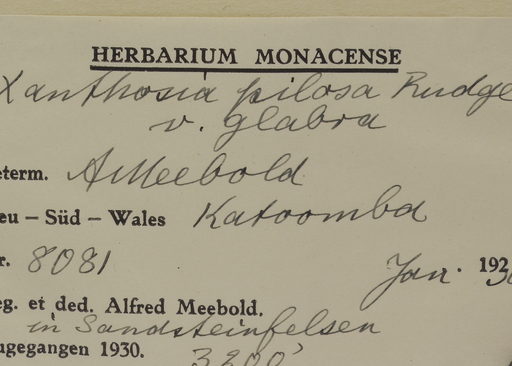 HERBARIUM MONACENSE
Xanthosia pilosa Rudge
v. glabra
eterm. AMeebold
eu – Süd – Wales Katoomba
r. 8081 Jan. 192
eg. et ded. Alfred Meebold.
in Sandsteinfelsen
ugegangen 1930.
3200'